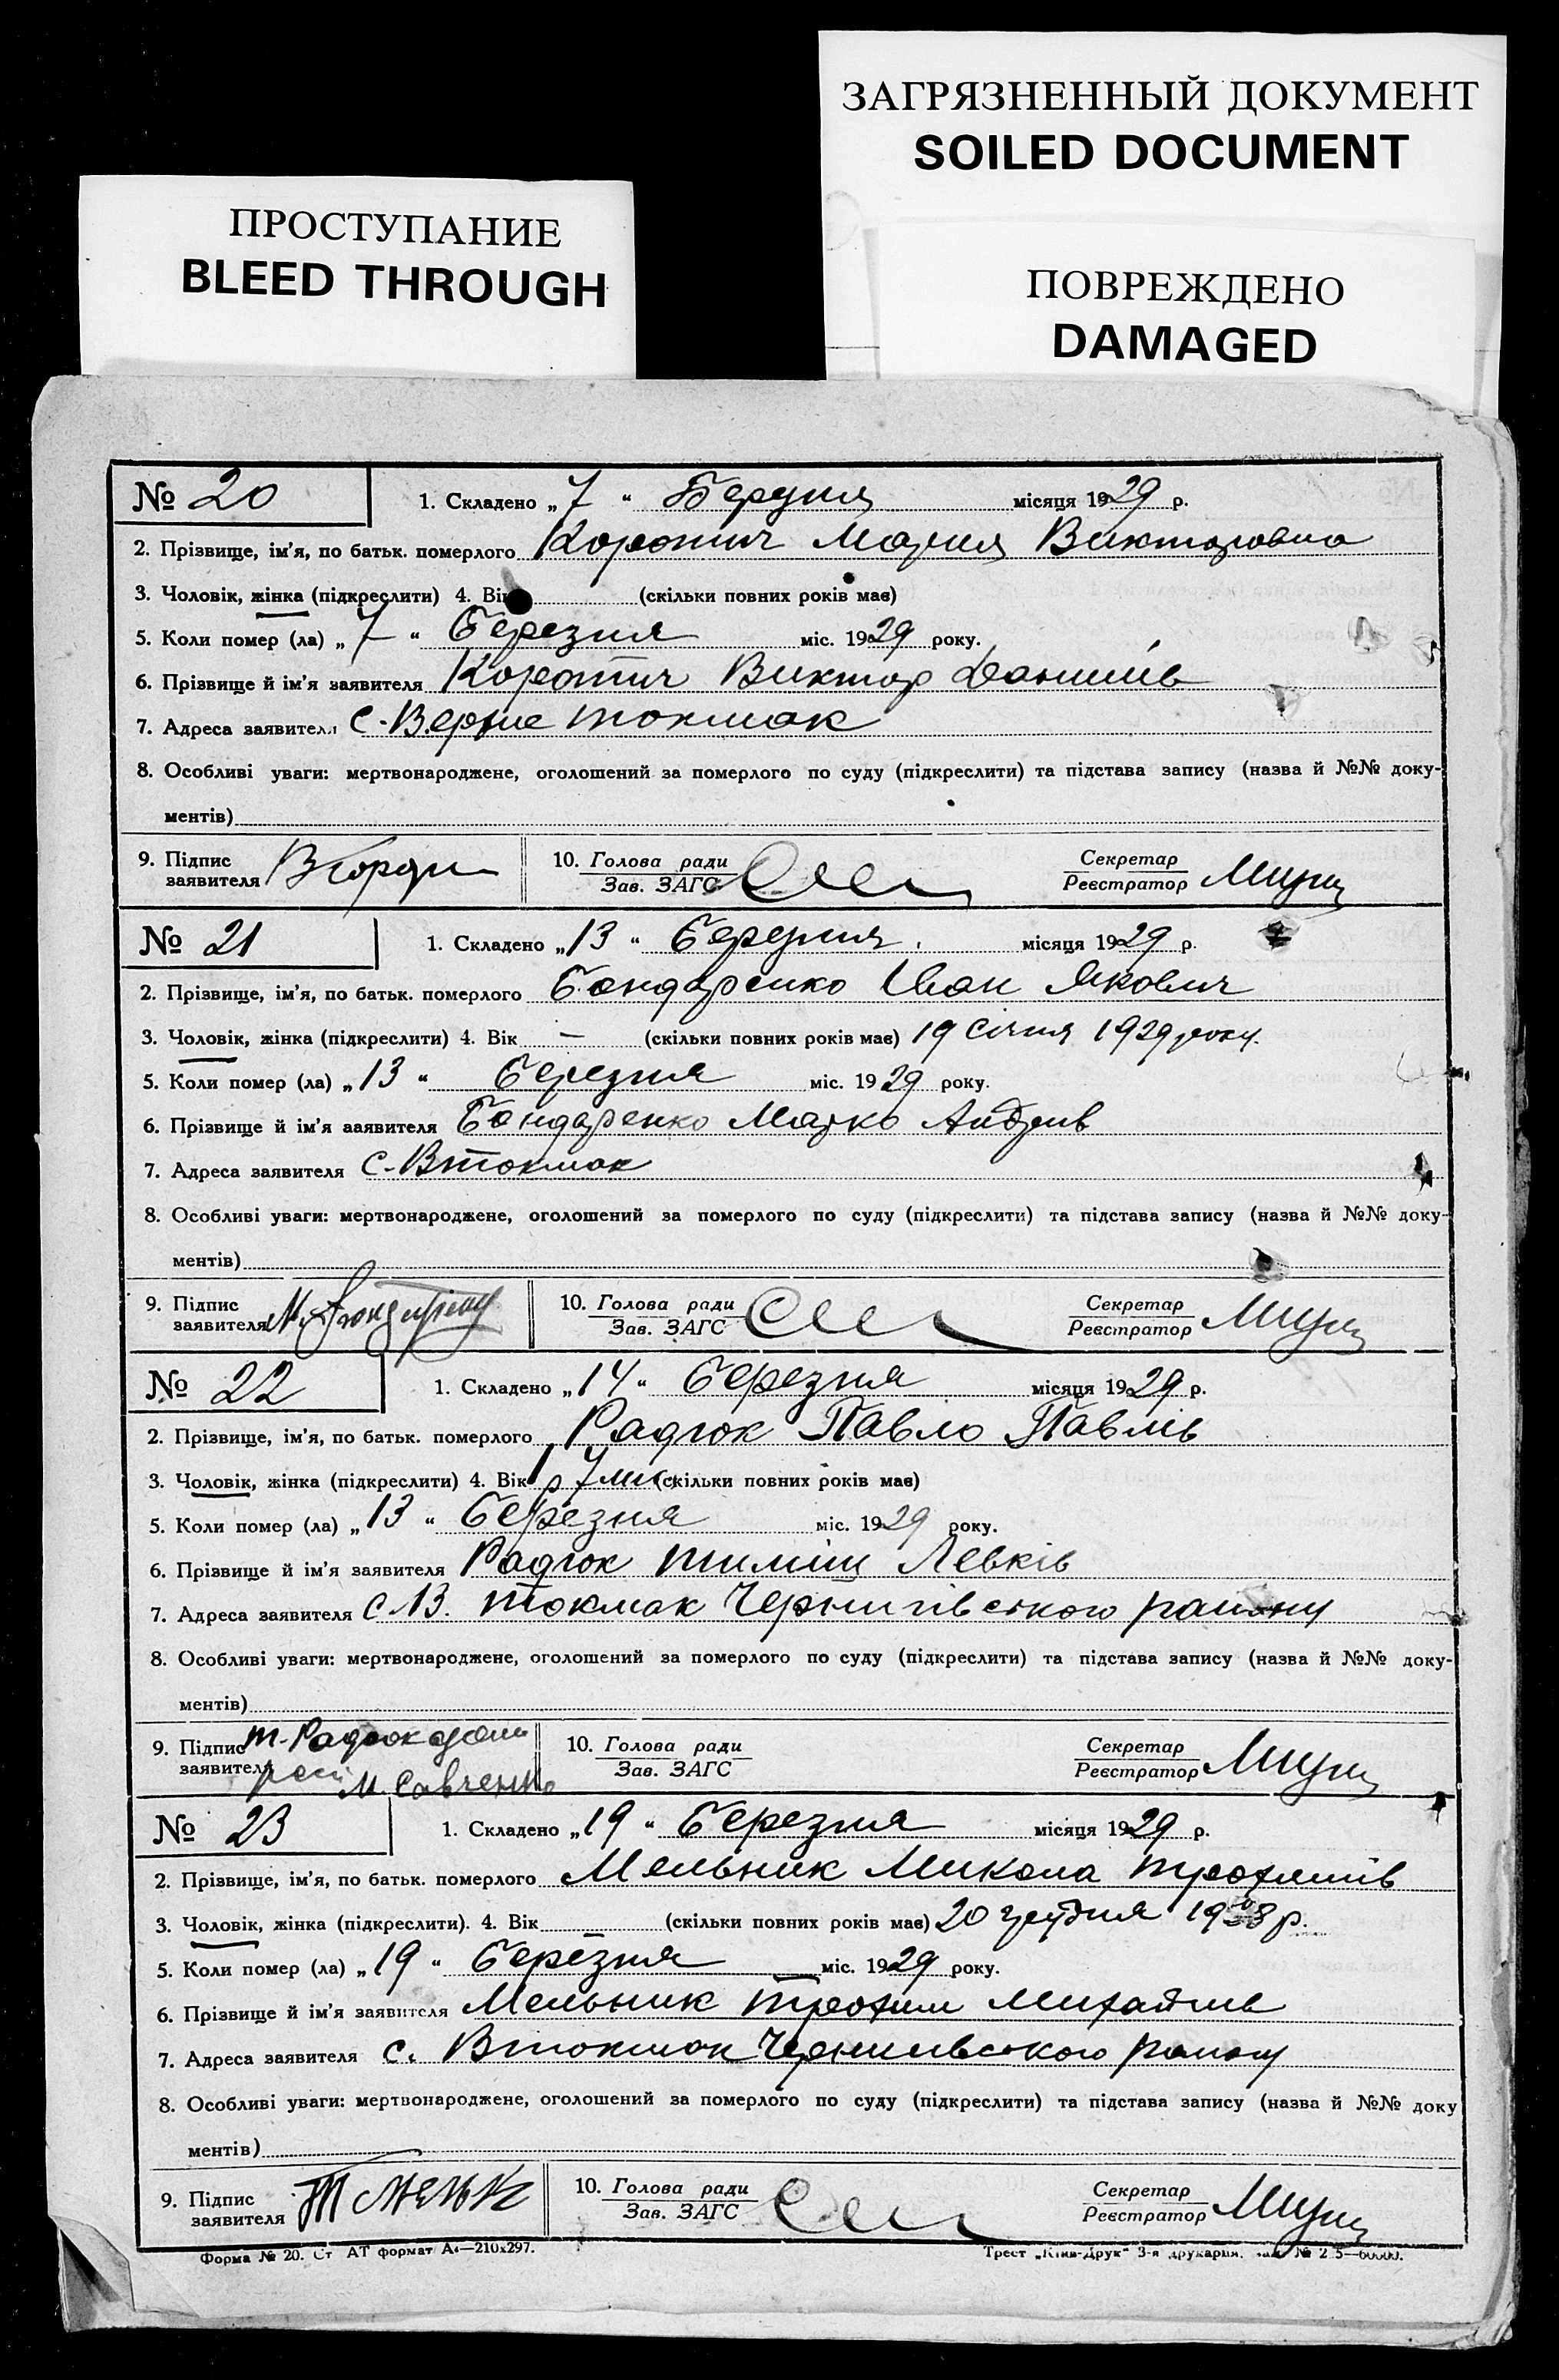 ЗАГРЯЗНЕННЫЙ ДОКУМЕНТ
SOILED DOCUMENT
ПРОСТУПАНИЕ
BLEED THROUGH
ПОВРЕЖДЕНО
DAMAGED
№ 20 1. Складено „7“ Березня місяця 1929 р.
2. Прізвище, ім'я, по батьк. померлого Коротич Мария Викторовна
3. Чоловік, жінка (підкреслити) 4. Вік (скільки повних років має)
5. Коли помер (ла) „7“ Березня міс. 1929 року.
6. Прізвище й ім'я заявителя Коротич Виктор Данилів
7. Адреса заявителя с. Верхне токмак
8. Особливі уваги: мертвонароджене, оголошений за померлого по суду (підкреслити) та підстава запису (назва й №№ доку-
ментів)
9. Підпис заявителя 10. Голова ради Зав. ЗАГС Секретар Реєстратор
№ 21 1. Складено „13“ Березня місяця 1929 р.
2. Прізвище, ім'я, по батьк. померлого Бондаренко Иван Якович
3. Чоловік, жінка (підкреслити) 4. Вік — (скільки повних років має) 19 січня 1929 року.
5. Коли помер (ла) „13“ Березня міс. 1929 року.
6. Прізвище й ім'я заявителя Бондаренко Марко Андрив
7. Адреса заявителя с. Втокмак
8. Особливі уваги: мертвонароджене, оголошений за померлого по суду (підкреслити) та підстава запису (назва й №№ доку-
ментів)
9. Підпис заявителя 10. Голова ради Зав. ЗАГС Секретар Реєстратор
№ 22 1. Складено „14“ Березня місяця 1929 р.
2. Прізвище, ім'я, по батьк. померлого Радюк Павло Павлів
3. Чоловік, жінка (підкреслити) 4. Вік 1 р 7 міс (скільки повних років має)
5. Коли помер (ла) „13“ Березня міс. 1929 року.
6. Прізвище й ім'я заявителя Радюк тиміш Левків
7. Адреса заявителя с В. токмак Чернигівського району
8. Особливі уваги: мертвонароджене, оголошений за померлого по суду (підкреслити) та підстава запису (назва й №№ доку-
ментів)
9. Підпис заявителя т. Радюк М. Савченко 10. Голова ради Зав. ЗАГС Секретар Реєстратор
№ 23 1. Складено „19“ Березня місяця 1929 р.
2. Прізвище, ім'я, по батьк. померлого Мельник Микола трохимів
3. Чоловік, жінка (підкреслити). 4. Вік (скільки повних років має) 20 грудня 1928 р.
5. Коли помер (ла) „19“ Березня міс. 1929 року.
6. Прізвище й ім'я заявителя Мельник трохим Михайлив
7. Адреса заявителя с. Втокмак Чернигивського району
8. Особливі уваги: мертвонароджене, оголошений за померлого по суду (підкреслити) та підстава запису (назва й №№ доку
ментів)
9. Підпис заявителя 10. Голова ради Зав. ЗАГС Секретар Реєстратор
Форма № 20. Ст АТ формат А4—210х297. Трест „Київ-Друк“ 3-я друкарня.